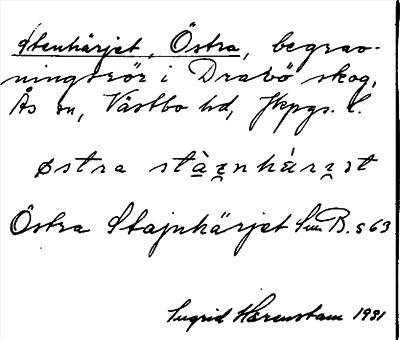 Stenhärjet, Östra, begrav-
ningsrör i Drabo skog,
Ås sn, Västbo hd, Jkpgs. l.
østra stàɛ̯nhárɛ̯ɜt
Östra Stajnhärjet Sm B. s 63.
Ingrid Hærenstam 1931